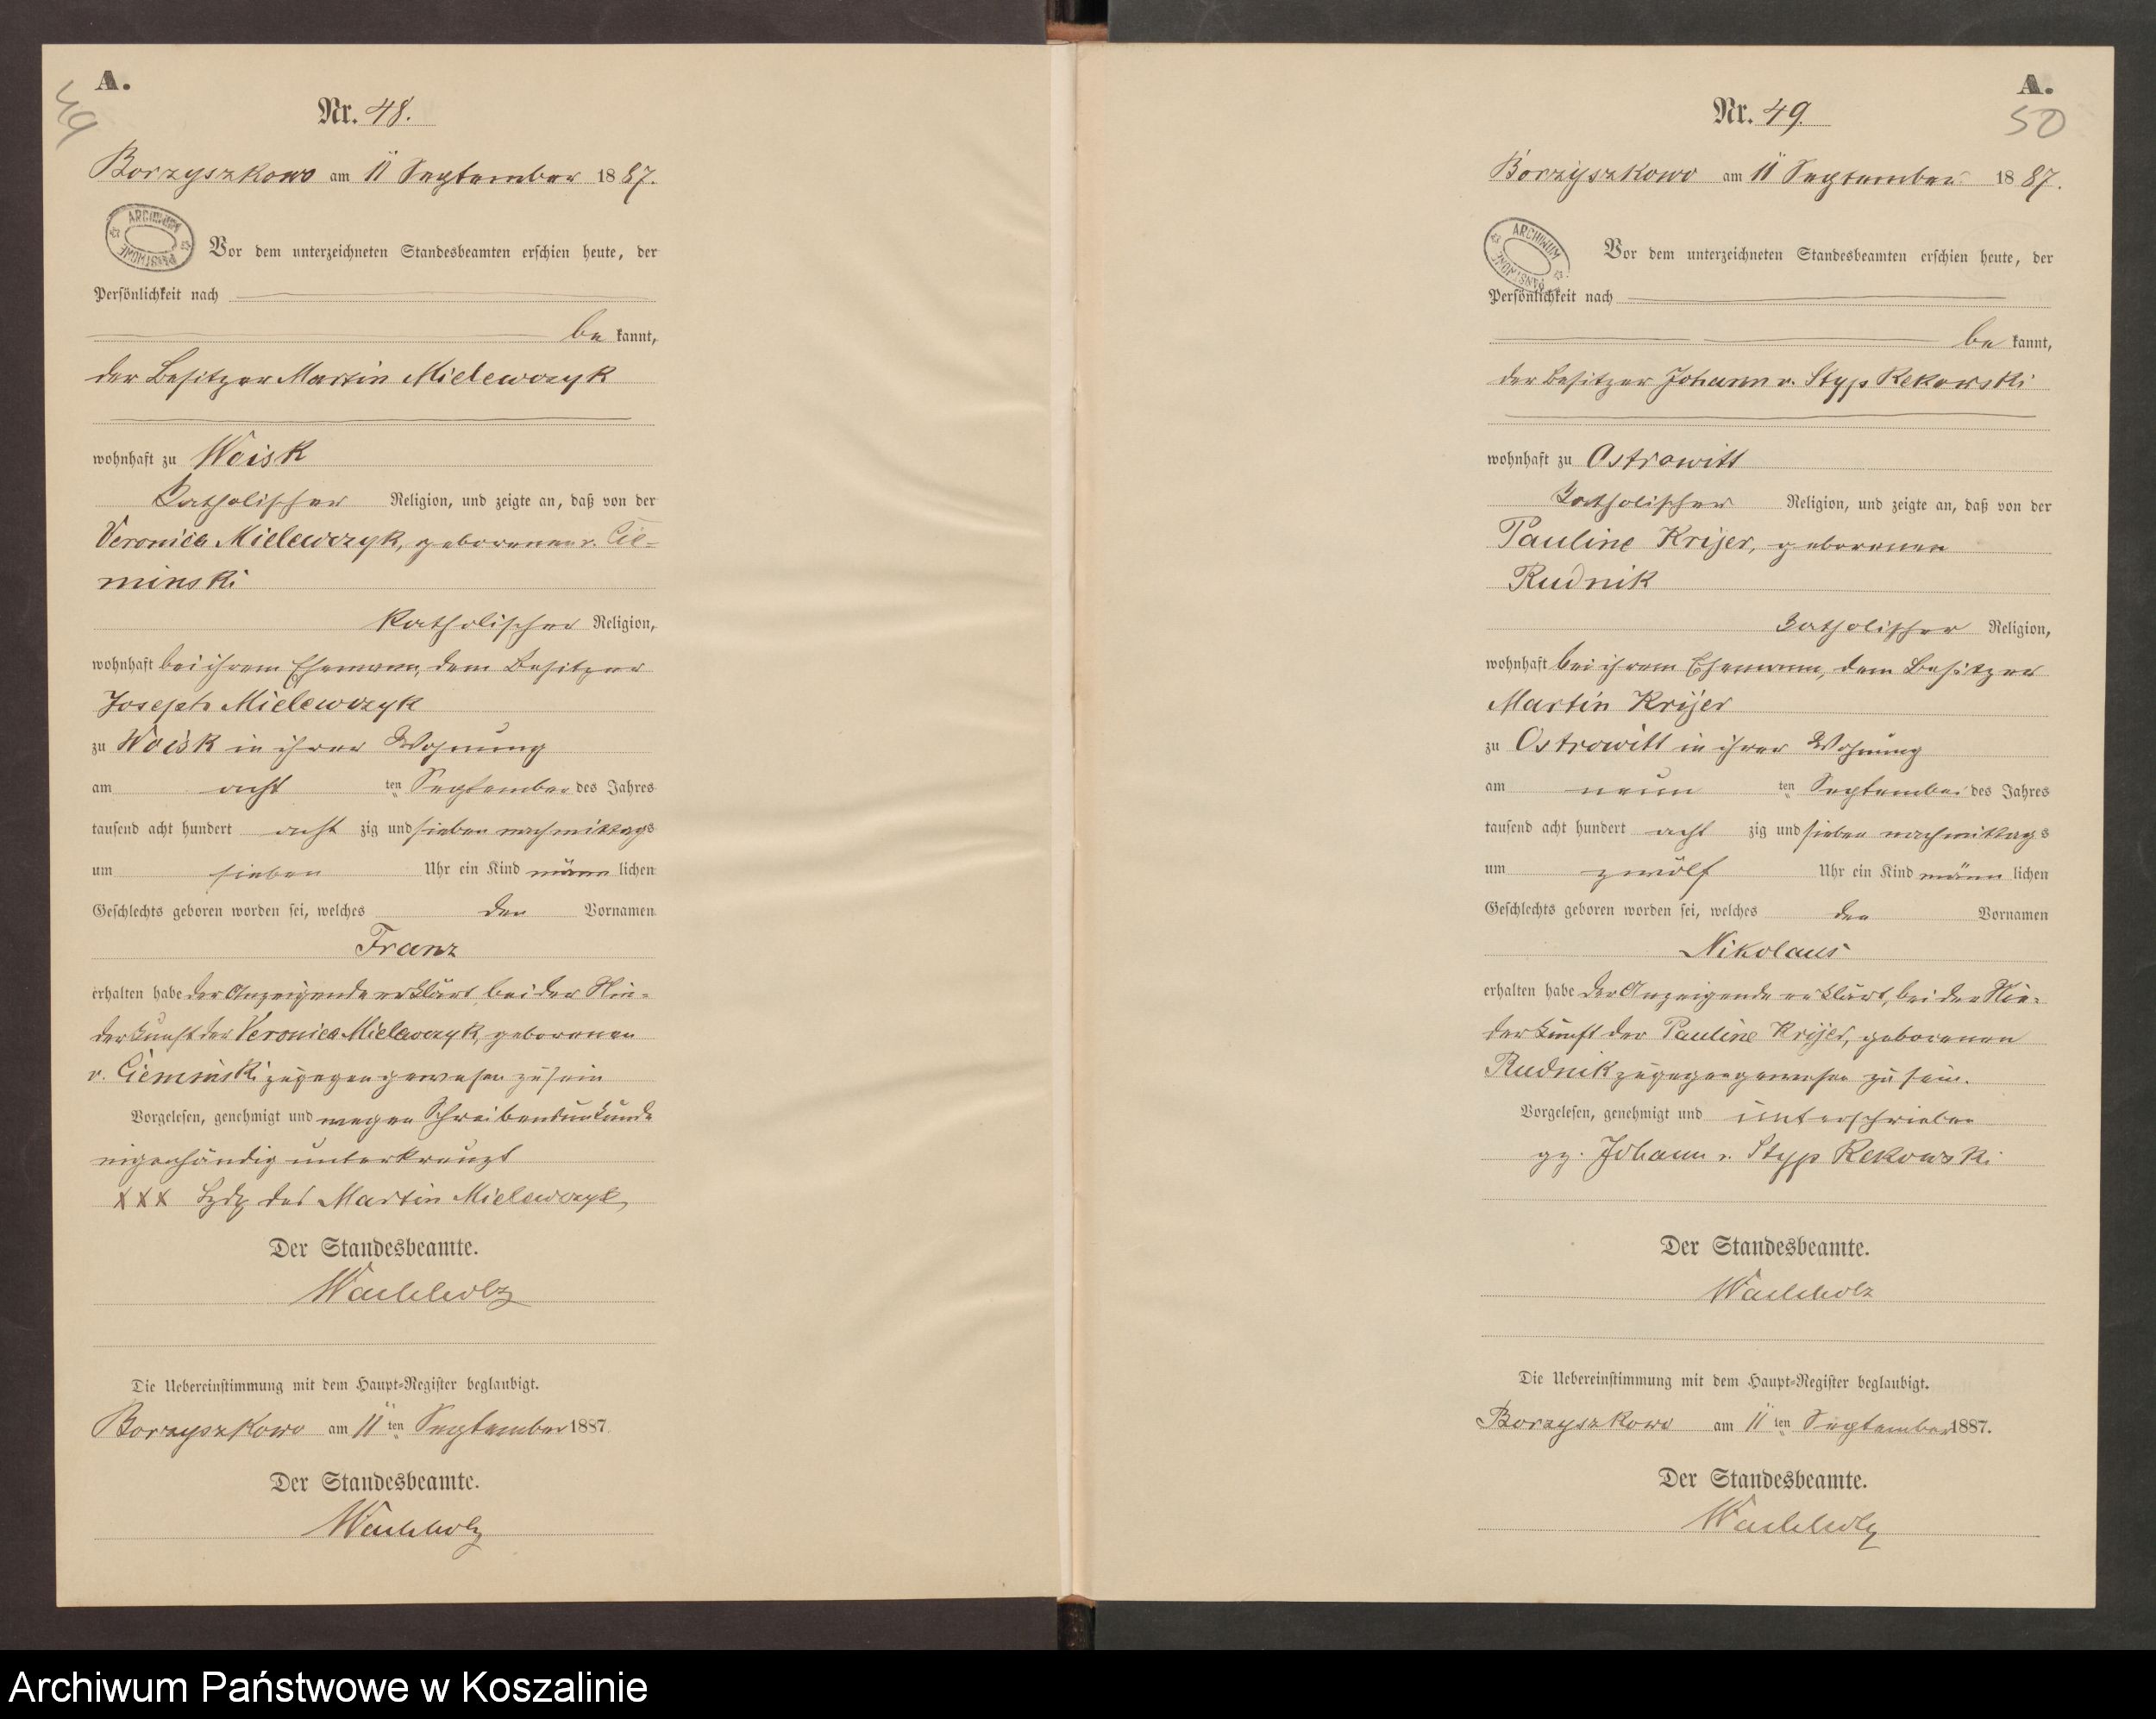 A.
49
Nr. 48.
Borzyszkowo am 11 September 1887.
ARCHIWUM PAŃSTWOWE
Vor dem unterzeichneten Standesbeamten erschien heute, der
Persönlichkeit nach
be kannt,
der Besitzer Martin Mielewczyk
wohnhaft zu Woisk
Katholischer Religion, und zeigte an, daß von der
Veronica Mielewczyk, geborenen v. Cie-
minski
Katholischer Religion,
wohnhaft bei ihrem Ehemann, dem Besitzer
Joseph Mielewczyk
zu Woisk in ihrer Wohnung
am acht ten September des Jahres
tausend acht hundert acht zig und sieben nachmittags
um sieben Uhr ein Kind männ lichen
Geschlechts geboren worden sei, welches den Vornamen
Franz
erhalten habe der Anzeigende erklärt, bei der Nie-
derkunft der Veronica Mielewczyk, geborenen
v. Cieminski zugegen gewesen zu sein
Vorgelesen, genehmigt und wegen Schreibensunkunde
eigenhändig unterkreuzt
XXX Hdz des Martin Mielewczyk
Der Standesbeamte.
Wachholz
Die Uebereinstimmung mit dem Haupt-Register beglaubigt.
Borzyszkowo am 11 ten September 1887.
Der Standesbeamte.
Wachholz
A.
50
Nr. 49.
Borzyszkowo am 11 September 1887.
ARCHIWUM PAŃSTWOWE
Vor dem unterzeichneten Standesbeamten erschien heute, der
Persönlichkeit nach
be kannt,
der Besitzer Johann v. Styp Rekowski
wohnhaft zu Ostrowitt
Katholischer Religion, und zeigte an, daß von der
Pauline Krijer, geborenen
Rudnik
Katholischer Religion,
wohnhaft bei ihrem Ehemann, dem Besitzer
Martin Krijer
zu Ostrowitt in ihrer Wohnung
am neun ten September des Jahres
tausend acht hundert acht zig und sieben nachmittags
um zwölf Uhr ein Kind männ lichen
Geschlechts geboren worden sei, welches den Vornamen
Nikolaus
erhalten habe der Anzeigende erklärt, bei der Nie-
derkunft der Pauline Krijer, geborenen
Rudnik zugegen gewesen zu sein.
Vorgelesen, genehmigt und unterschrieben
gz. Johann v. Styp Rekowski
Der Standesbeamte.
Wachholz
Die Uebereinstimmung mit dem Haupt-Register beglaubigt.
Borzyszkowo am 11 ten September 1887.
Der Standesbeamte.
Wachholz
Archiwum Państwowe w Koszalinie